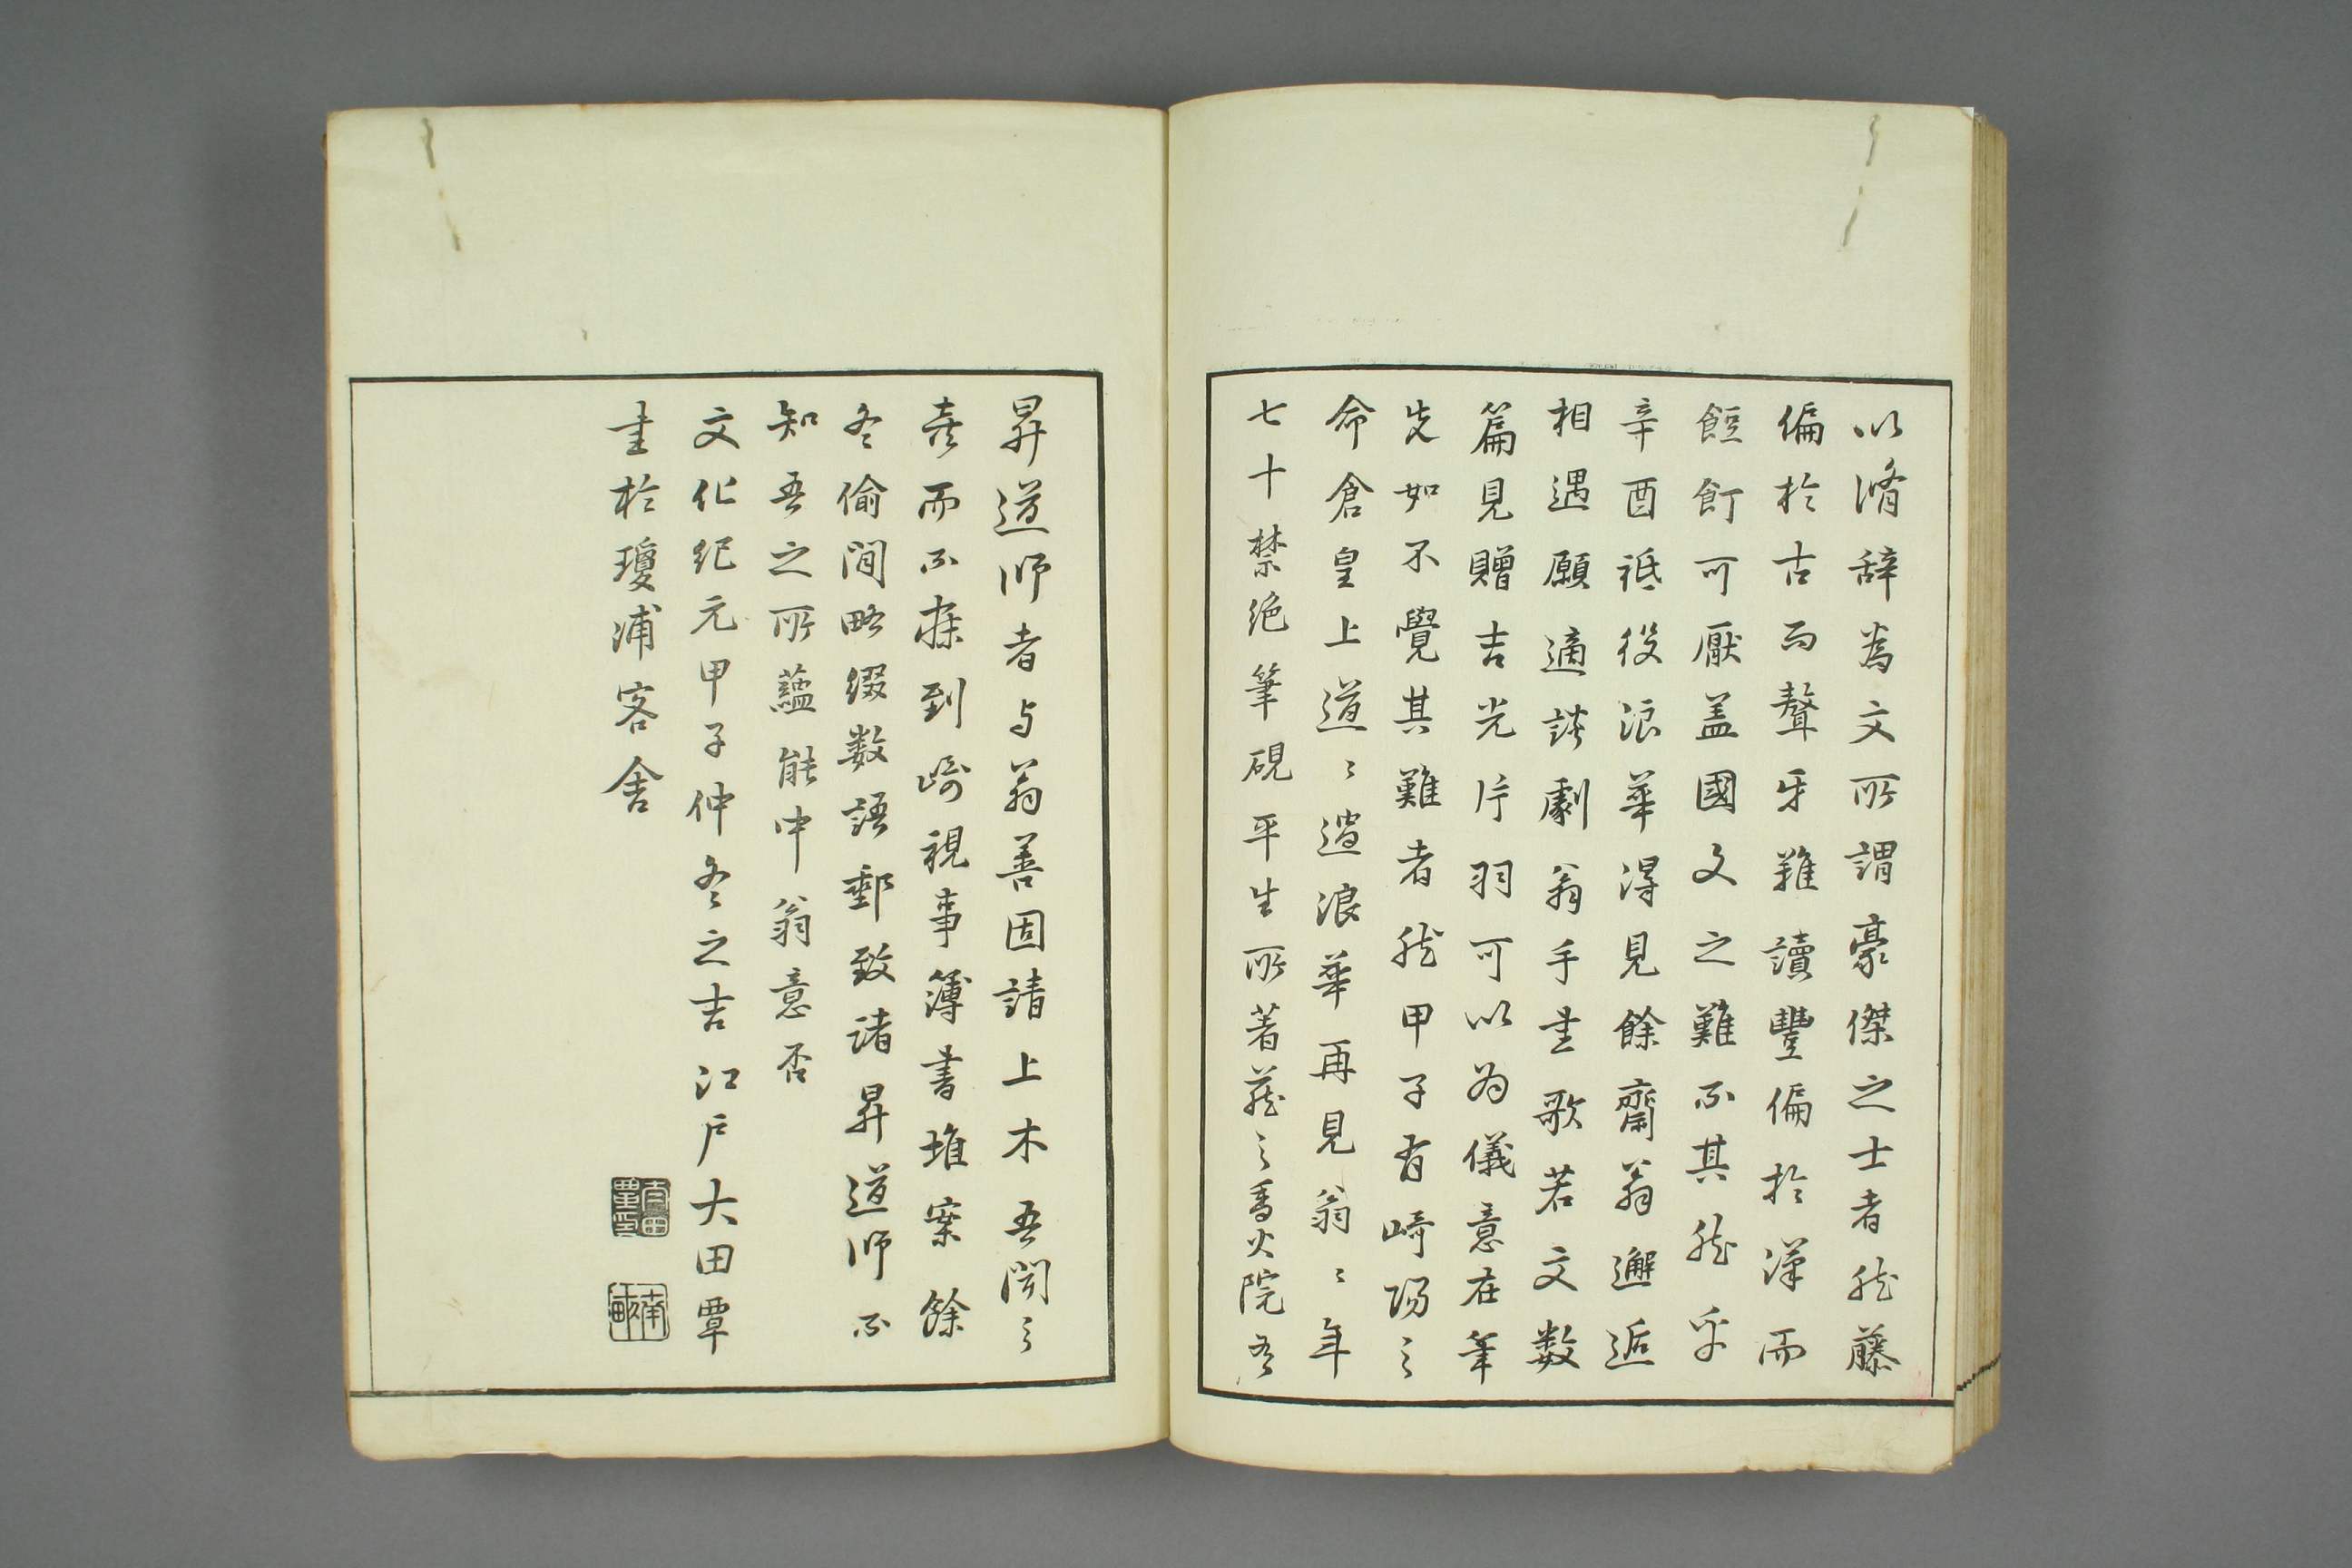 以脩辞為文所謂豪傑之士者然藤
偏於古而聱牙難讀豐偏於漢而
餖飣可厭盖國文之難不其然乎
辛酉祗役浪華得見餘齋翁邂逅
相遇願適談劇翁手書歌若文数
篇見贈吉光片羽可以為儀意在筆
先如不覺其難者然甲子有崎陽之
命倉皇上道〻過浪華再見翁〻年
七十禁絶筆硯平生所著蔵之香火院有
昇道师者与翁善因請上木吾聞之
喜而不寐到崎視事簿書堆案餘
冬偷間略綴数語郵致诸昇道师不
知吾之所蘊能中翁意否
文化紀元甲子仲冬之吉江戸大田覃
書於瓊浦客舎
大田覃印
南畝